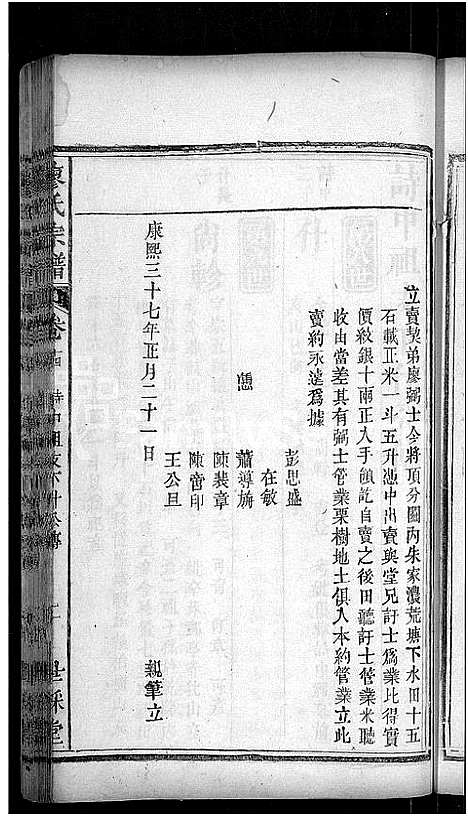 詩中祖
立賣契弟廖弼士今將項分圖內朱家濃荒塘下水田十五
石載正米一斗五升憑中出賣與堂兄訏士為業比得實
價紋銀十兩正入手領訖自賣之後田聽訏士管業米聽
收由當差其有弼士管業栗樹地土俱入本約管業立此
賣約永遠為據
彭思盛
在敏
憑 蕭導旃
陳裴章
陳啻印
王公旦
康熙三十七年正月二十一日 親筆立
廖氏宗譜 卷十四 詩中祖支 世綵堂